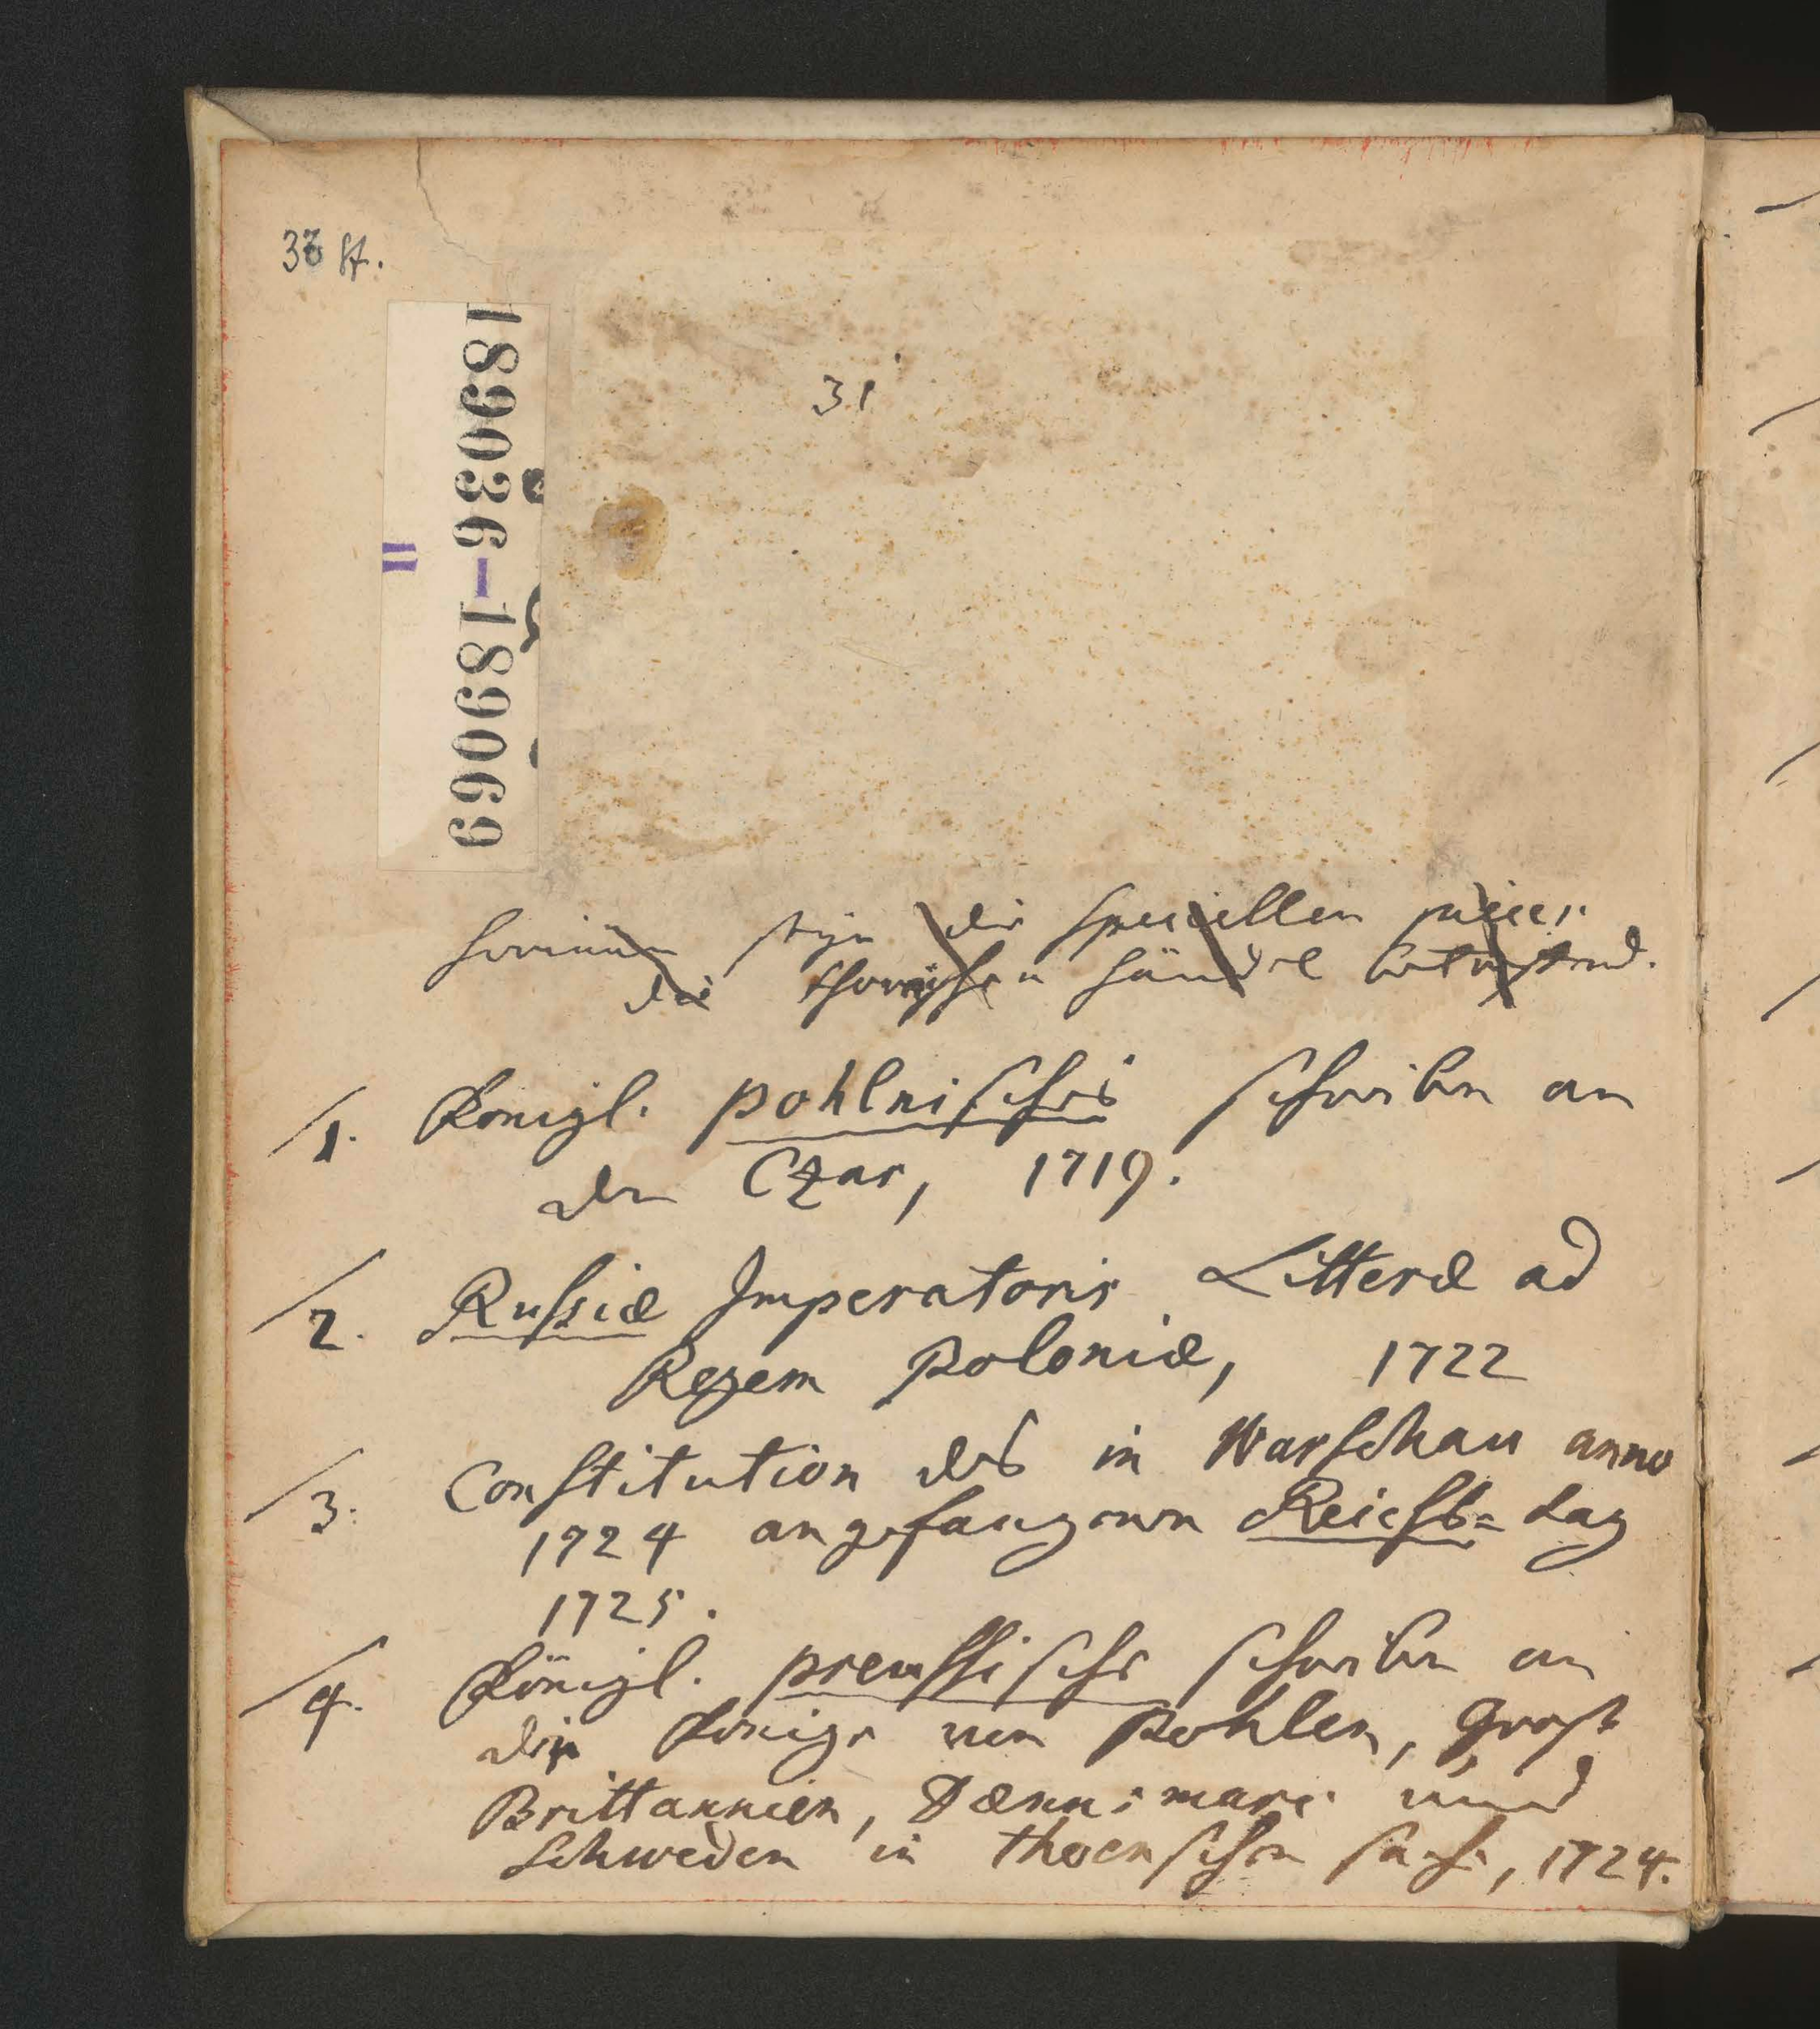 36 St.
31
189036-189069
II
hierinnen steh die speciellen piecen
die thornischen händel betreffend.
1. Königl. pohlnisches schreiben an
den Czar, 1719.
2. Russiæ Imperatoris Litteræ ad
Regem Poloniæ, 1722
3. Constitution des in Warschau anno
1724 angefangenen Reichs= tag
1725.
4. Königl. preussische schreiben an
die Könige von Pohlen, Groß
Brittannien, Dænnemarc und
Schweden in thoernschen sache, 1724.